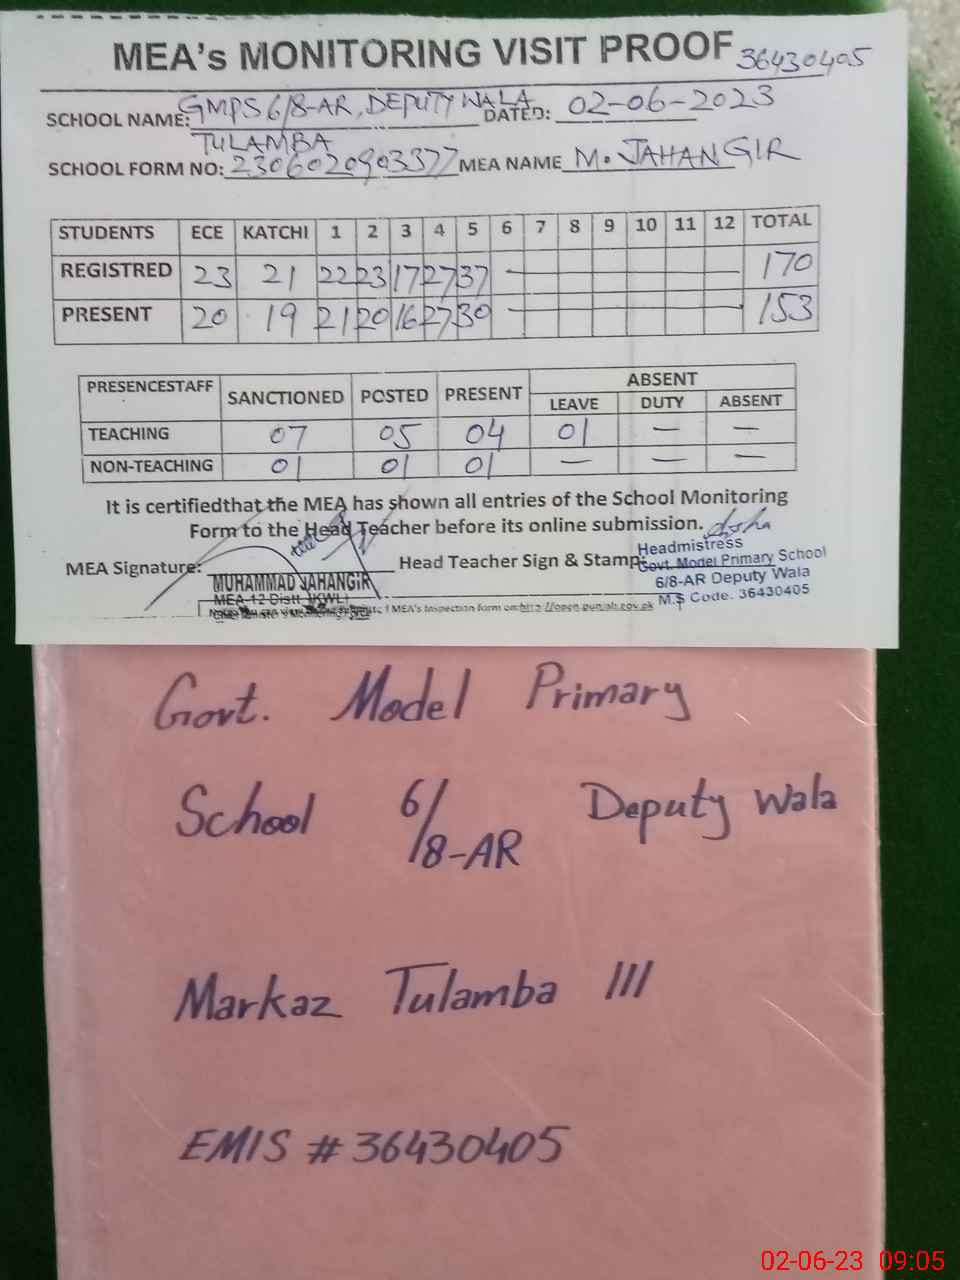 MEA's MONITORING VISIT PROOF 36430405
SCHOOL NAME: GMPS 6/8-AR, DEPUTY WALA DATED: 02-06-2023
TULAMBA
SCHOOL FORM NO: 2306020903377 MEA NAME M. JAHANGIR
STUDENTS ECE KATCHI 1 2 3 4 5 6 7 8 9 10 11 12 TOTAL
REGISTRED 23 21 22 23 17 27 37 170
PRESENT 20 19 21 20 16 27 30 153
PRESENCESTAFF SANCTIONED POSTED PRESENT ABSENT
LEAVE DUTY ABSENT
TEACHING 07 05 04 01 — —
NON-TEACHING 01 01 01 — — —
It is certifiedthat the MEA has shown all entries of the School Monitoring
Form to the Head Teacher before its online submission.
MEA Signature: Head Teacher Sign & Stamp:
MUHAMMAD JAHANGIR
MEA-12 Distt. (KWL)
Headmistress
Govt. Model Primary School
6/8-AR Deputy Wala
M.S Code. 36430405
MEA's Inspection form on http://open.punjab.gov.pk
Govt. Model Primary
School 6/8-AR Deputy Wala
Markaz Tulamba III
EMIS # 36430405
02-06-23 09:05